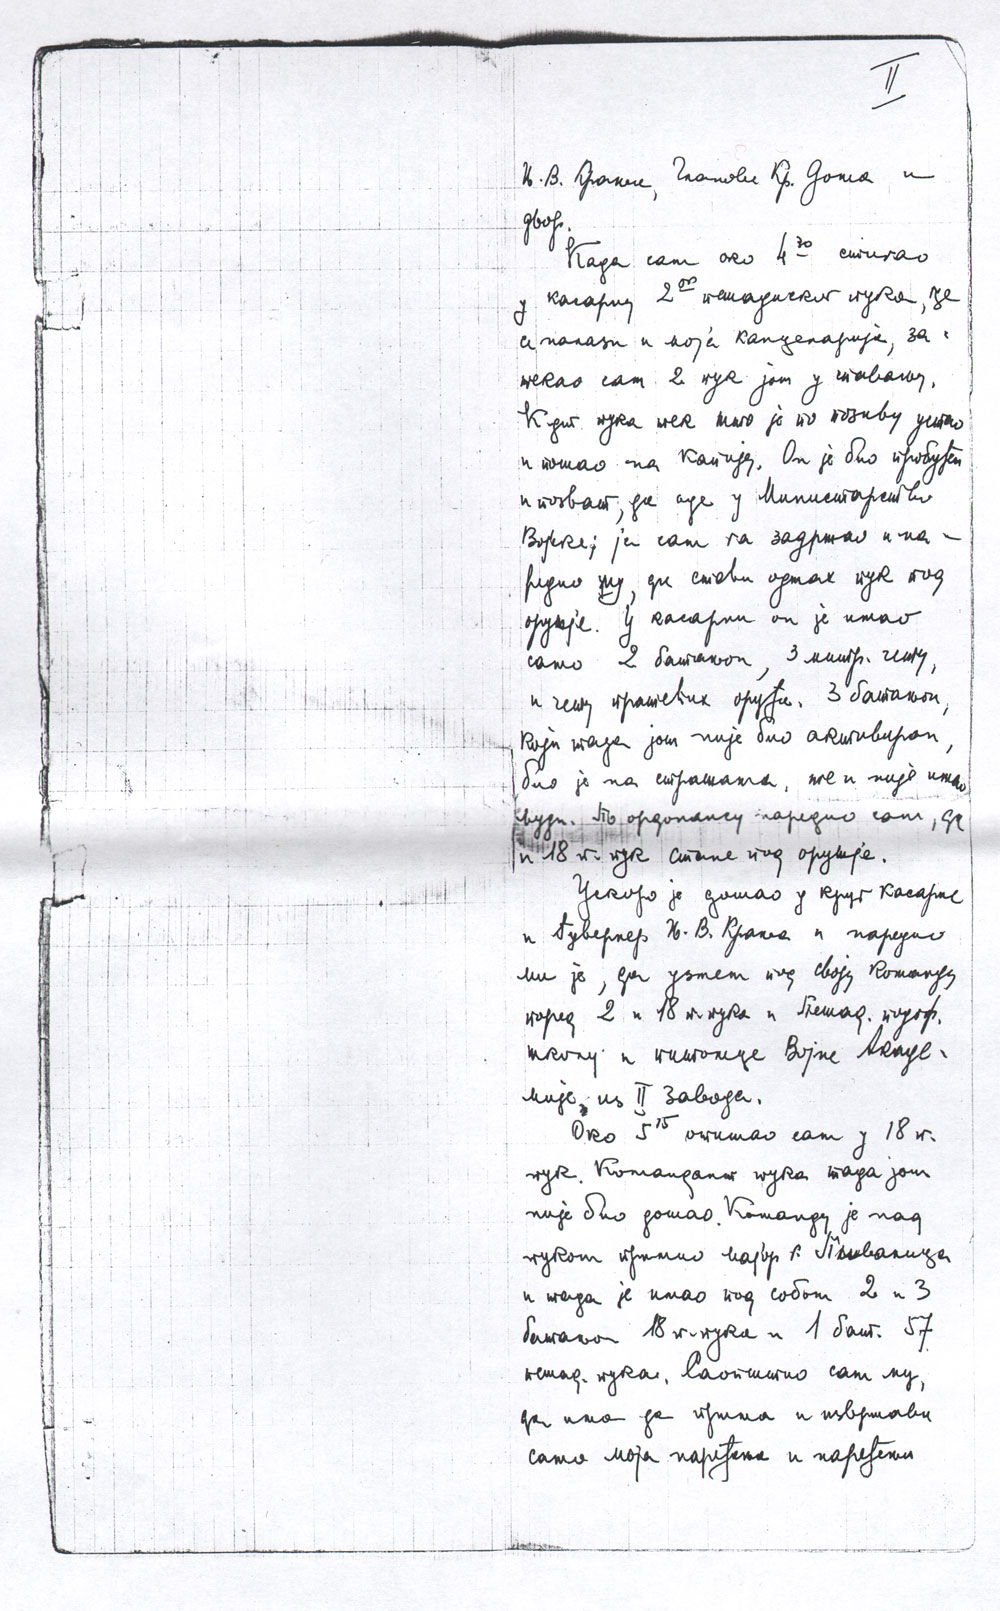 II
Њ. В. Краља, чланови Кр. Дома и
двор.
Када сам око 4 30 стигао
у касарну 2ог пешадиског пука, где
се налази и моја канцеларија, за-
текао сам 2 пук још у спавању.
К-дит пука тек што је по позиву устао
и пошао на капију. Он је био пробуђен
и позват, да иде у Министарство
Војске; ја сам га задржао и на-
редио му, да стави одмах пук под
оружје. У касарни он је имао
само 2 батаљон, 3 митр. чету,
и чету пратећих оруђа. 3 батаљон,
који тада још није био активиран,
био је на стражама, те и није имао
људи. По ордонансу наредио сам, да
и 18 п. пук стане под оружје.
Ускоро је дошао у круг касарне
и Гувернер Њ. В. Краља и наредио
ми је, да узмем под своју команду
поред 2 и 18 п. пука и Пешад. подоф.
школу и питомце Војне Акаде-
мије, из II Завода.
Око 5 15 отишао сам у 18 п.
пук. Командант пука тада још
није био дошао. Команду је над
пуком примио мајор г. Пливаница
и тада је имао под собом 2 и 3
батаљон 18 п. пука и 1 бат. 57
пешад. пука. Саопштио сам му,
да има да прима и извршава
само моја наређења и наређења